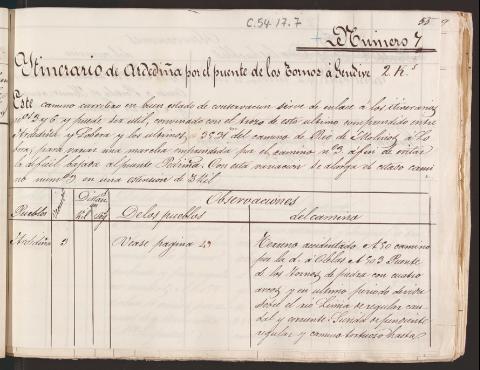 C.54.17.7
55
Número 7
Itinerario de Ardediña por el puente de los Tornos á Gendive 2 K.s
Este camino carretero en buen estado de conservacion sirve de enlace á los itinerarios
n.os 3 y 6 y puede ser util, combinado con el trozo de este ultimo comprendido entre
y los ultimos 3531 m del camino de Rio de Molinos á
para una marcha emprendida por el camino n.o 3 a fin de evitar
la dificil bajada al puente Pedriña. Con esta variacion se alarga el citado cami
no num.o 3 en una estension de 3 Kil.
Observaciones
Pueblos
Distan
Kil
De los pueblos
del camino
Ardediña
Vease pagina 43
Terreno accidentado A 50 camino
por la d. á A 503 Puente
de los Tornos de piedra con cuatro
arcos y en ultimo periodo
sobre el rio Limia de regular cau
dal y corriente. Subida de pendiente
regular y camino tortuoso hasta